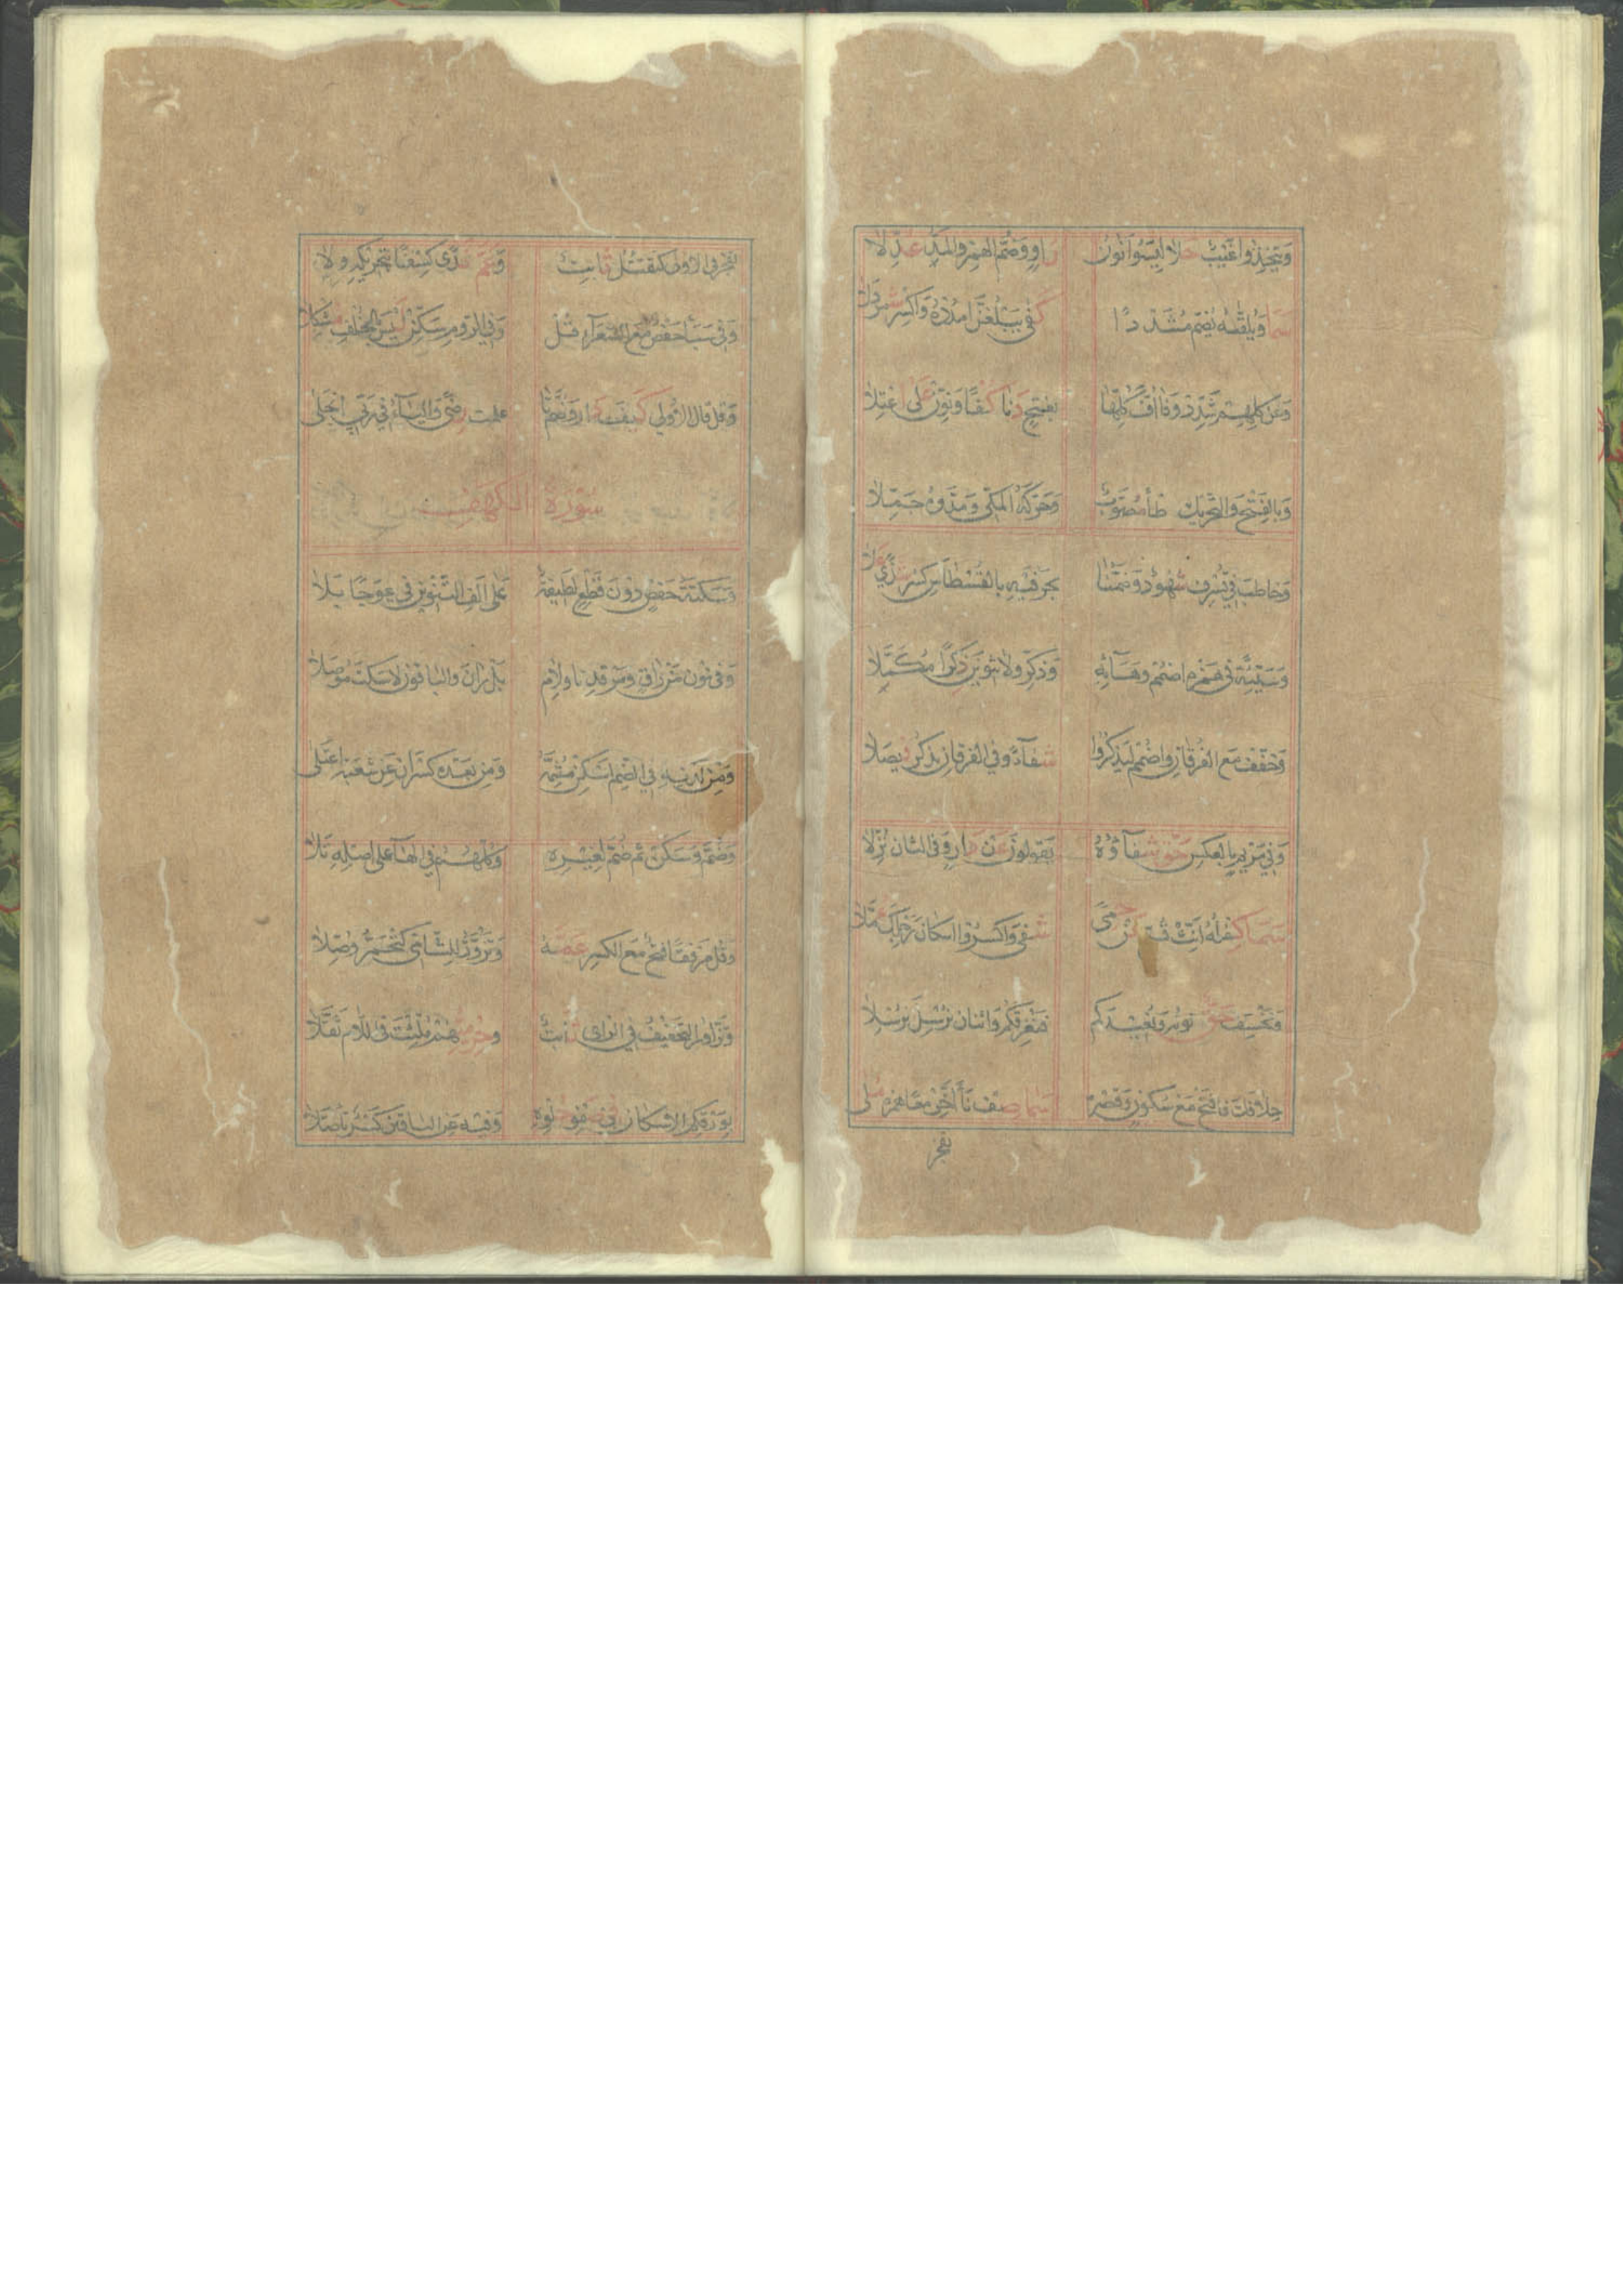 وَيَتَّخِذُوا غَيْبٌ حَلَا لِيَسُوءَ نُونُ رَاوٍ وَضَمُّ الْهَمْزِ وَالْمَدِّ عُدِّلَا
سَمَا وَيُلَقَّاهُ يُضَمُّ مُشَدَّدًا كَفَى يَبْلُغَنَّ امْدُدْهُ وَاكْسِرْ شَمَرْدَلَا
وَعَنْ كُلِّهِمْ شَدِّدْ وَفَا أُفَّ كُلِّهَا بِفَتْحٍ دَنَا كُفْئًا وَنَوِّنْ عَلَى اعْتِلَا
وَبِالْفَتْحِ وَالتَّحْرِيكِ خَطَأً مُصَوَّبٌ وَحَرَّكَهُ الْمَكِّي وَمَدَّ وَجَمَّلَا
وَخَاطَبَ فِي يُسْرِفْ شُهُودٌ وَضَمُّنَا بِحَرْفَيْهِ بِالْقُسْطَاسِ كَسْرُ شَذٍ عَلَا
وَسَيِّئَةً فِي هَمْزِهِ اضْمُمْ وَهَائِهِ وَذَكِّرْ وَلَا تَنْوِينَ ذِكْرًا مُكَمَّلَا
وَخَفِّفْ مَعَ الْفُرْقَانِ وَاضْمُمْ لِيَذْكُرُوا شِفَاءً وَفِي الْفُرْقَانِ يَذْكُرُ فُصِّلَا
وَفِي مَرْيَمٍ بِالْعَكْسِ حَقٌّ شِفَاؤُهُ يَقُولُونَ عَنْ دَارٍ وَفِي الثَّانِ نُزِّلَا
سَمَا كِفْلُهُ أَنِّثْ يُسَبِّحُ عَنْ حِمًى شَفَى وَاكْسِرُوا إِسْكَانَ رَجْلِكَ عُمَّلَا
وَيَخْسِفَ حَقٌّ نُونُهُ وَيُعِيدَكُمْ فَيُغْرِقَكُمْ وَاثْنَانِ نُرْسِلَ نُرْسِلَا
خِلَافَكَ فَافْتَحْ مَعْ سُكُونٍ وَقَصْرِهِ سَمَا صِفْ نَأَى أَخِّرْ مَعًا هَمْزَهُ مُلَا
تفجر
تُفَجِّرَ فِي الْأُولَى كَتَقْتُلَ ثَابِتٌ وَعَمَّ نَدًى كِسْفًا بِتَحْرِيكِهِ وَلَا
وَفِي سَبَأٍ حَفْصٌ مَعَ الشُّعَرَاءِ قُلْ وَفِي الرُّومِ سَكِّنْ لَيْسَ بِالْخُلْفِ مُشْكِلَا
وَقُلْ قَالَ الْأُولَى كَيْفَ دَارَ وَضُمَّ تَا عَلِمْتَ رِضًى وَالْيَاءُ فِي رَبِّيَ انْجَلَى
سورة الكهف
وَسَكْتَةُ حَفْصٍ دُونَ قَطْعٍ لَطِيفَةٌ عَلَى أَلِفِ التَّنْوِينِ فِي عِوَجًا بَلَا
وَفِي نُونِ مَنْ رَاقٍ وَمَرْقَدِنَا وَلَامِ بَلْ رَانَ وَالْبَاقُونَ لَا سَكْتَ مُوصَلَا
وَمِنْ لَدْنِهِ فِي الضَّمِّ أَسْكِنْ مُشِمَّهُ وَمِنْ بَعْدِهِ كَسْرَانِ عَنْ شُعْبَةَ اعْتَلَى
وَضُمَّ وَسَكِّنْ ثُمَّ ضُمَّ لِغَيْرِهِ وَكُلُّهُمْ فِي الْهَا عَلَى أَصْلِهِ تَلَا
وَقُلْ مَرْفِقًا فَتْحٌ مَعَ الْكَسْرِ عَمَّهُ وَتَزْوَرُّ لِلشَّامِي كَتَحْمَرُّ وُصِّلَا
وَتَزَّاوَرُ التَّخْفِيفُ فِي الزَّايِ ثَابِتٌ وَحِرْمِيُّهُمْ مُلِّئْتَ فِي اللَّامِ ثَقَّلَا
بِوَرْقِكُمُ الْإِسْكَانُ فِي صَفْوِ حُلْوِهِ وَفِيهِ عَنِ الْبَاقِينَ كَسْرٌ تَأَصَّلَا